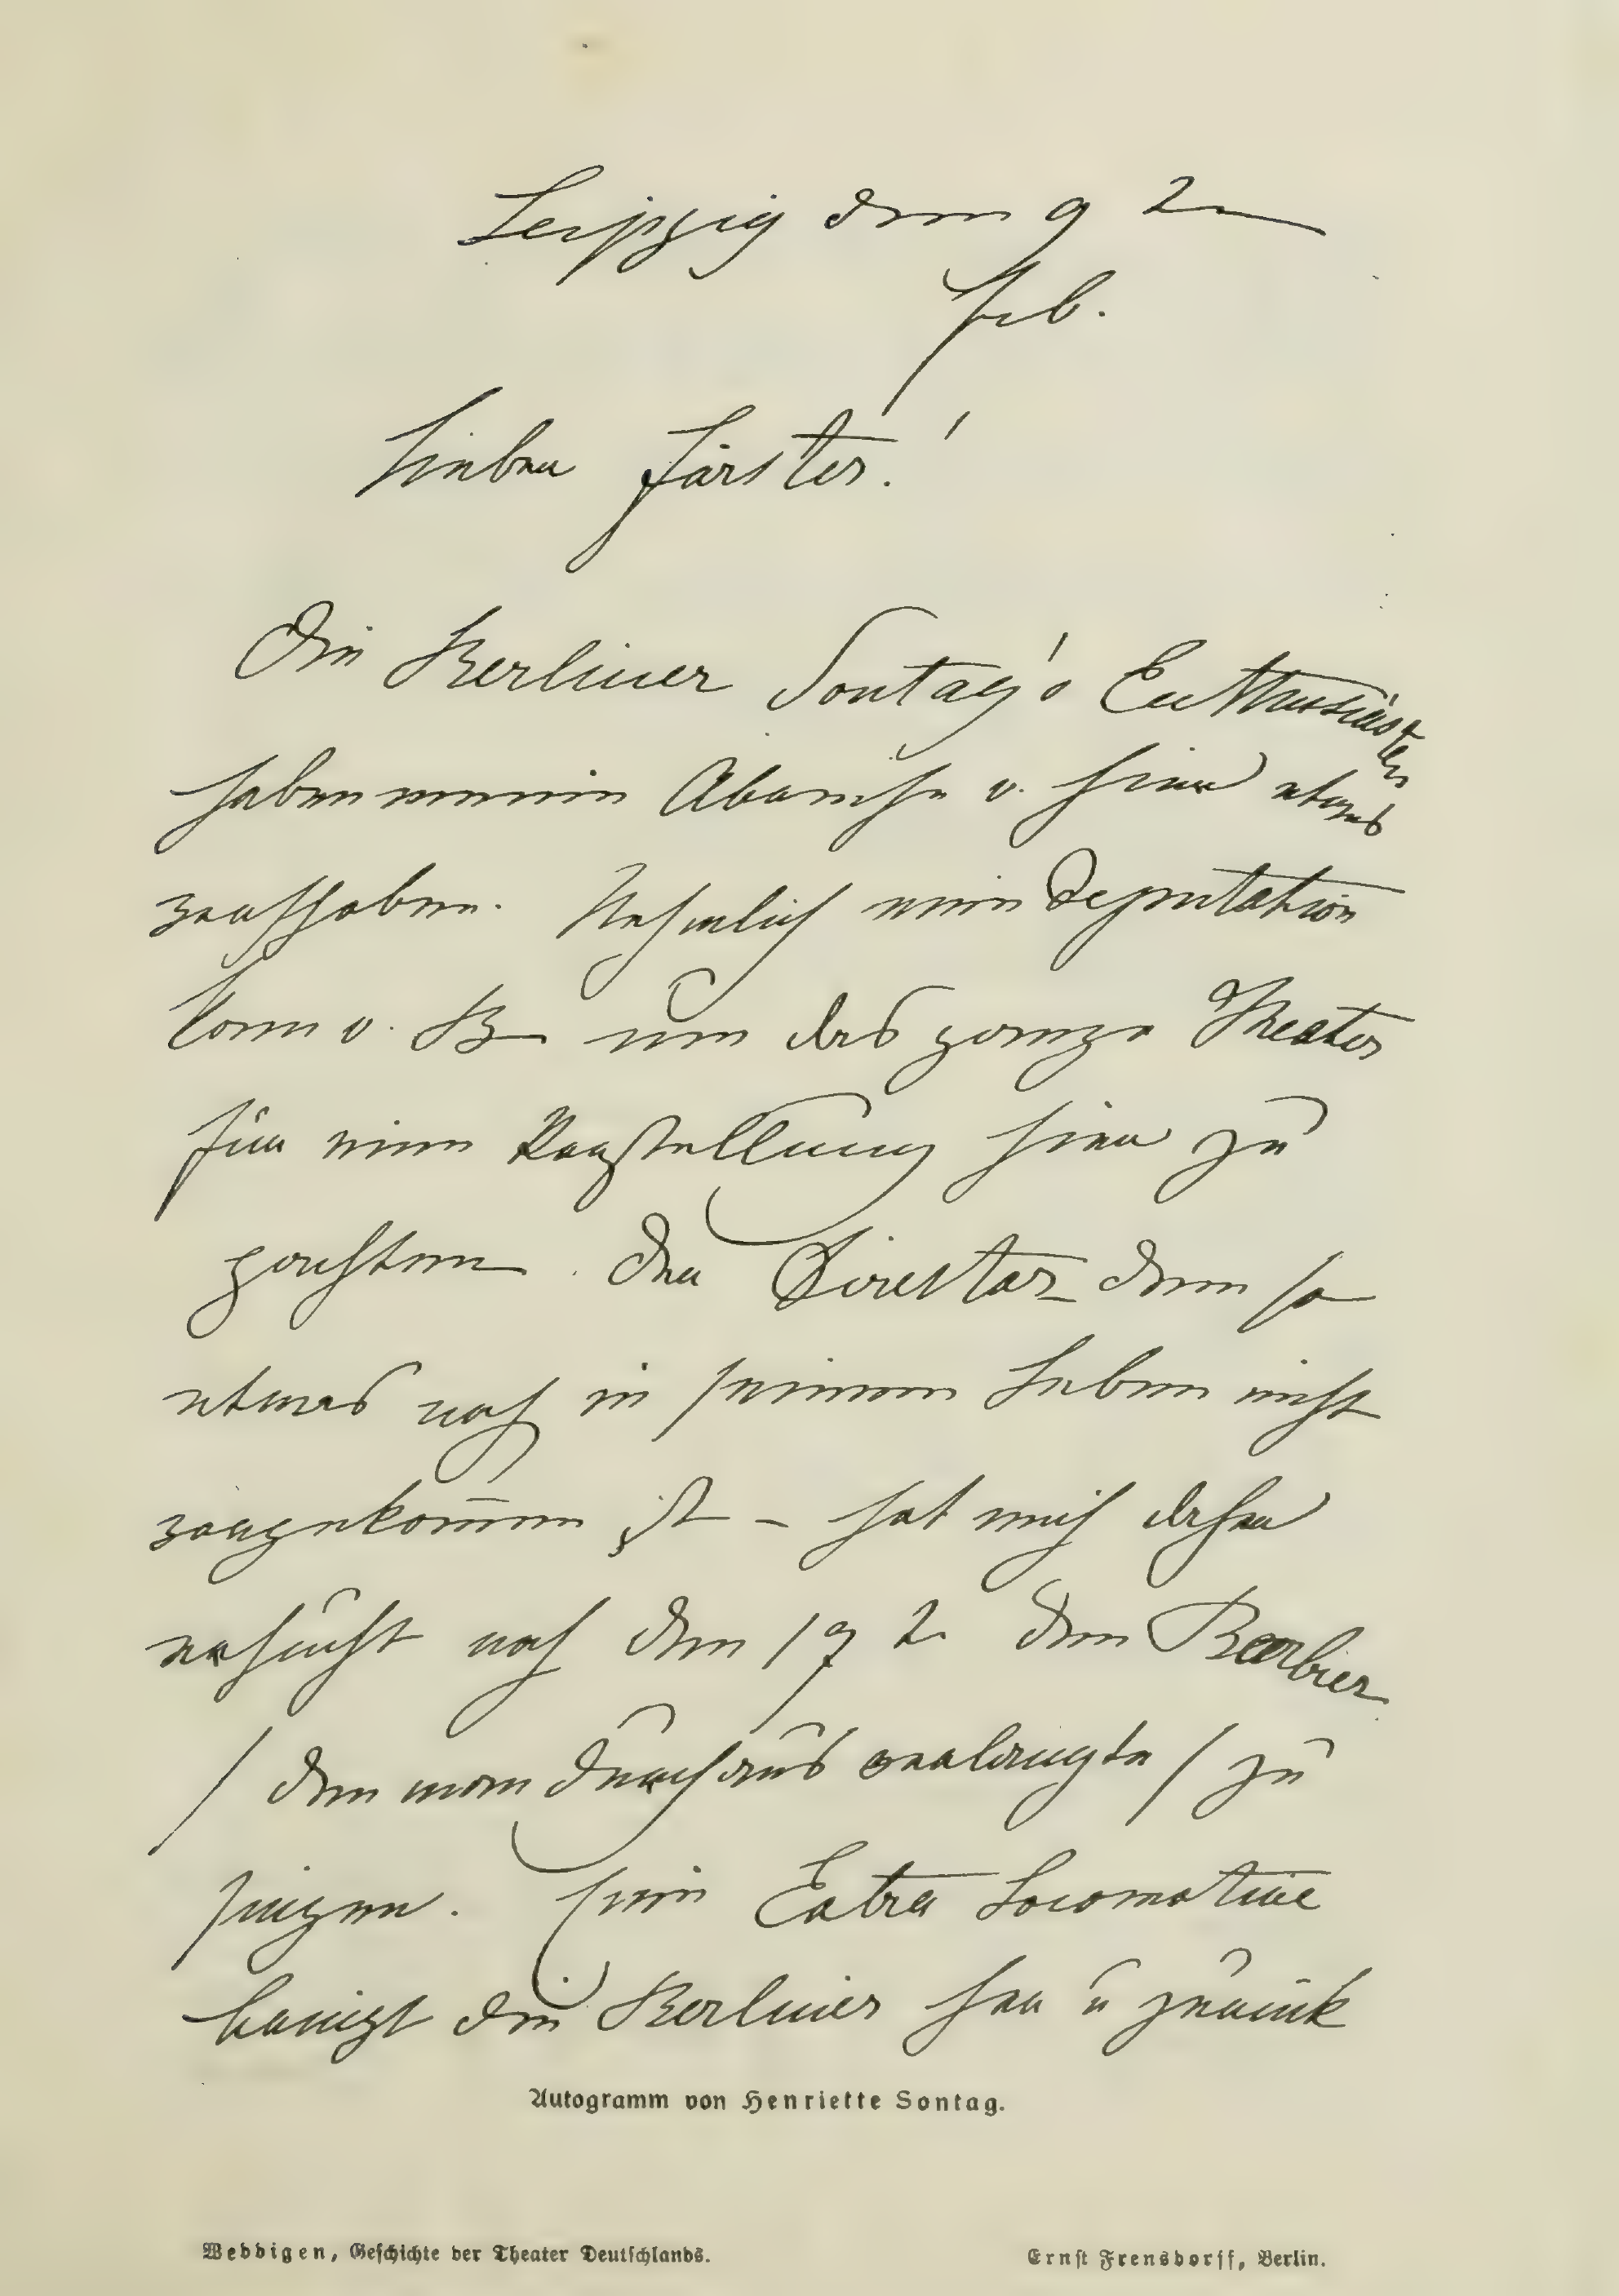 Leipzig den 9 2
Feb.
Lieber Förster!
Die Berliner Sontag's Enthusiasten
haben meine Abreise v. hier etwas
verschoben. Nehmlich eine Deputation
kam v. B um das ganze Theater
für eine Vorstellung hier zu
pachten. Der Director dem so
etwas noch in seinem Leben nicht
vorgekom̄en ist – hat mich daher
ersucht noch den 19 2 den Barbier
/ den man durchaus verlangte / zu
singen. Eine Extra Locomotive
bringt die Berliner her u zurück
Autogramm von Henriette Sontag.
Weddigen, Geschichte der Theater Deutschlands.
Ernst Frensdorff, Berlin.